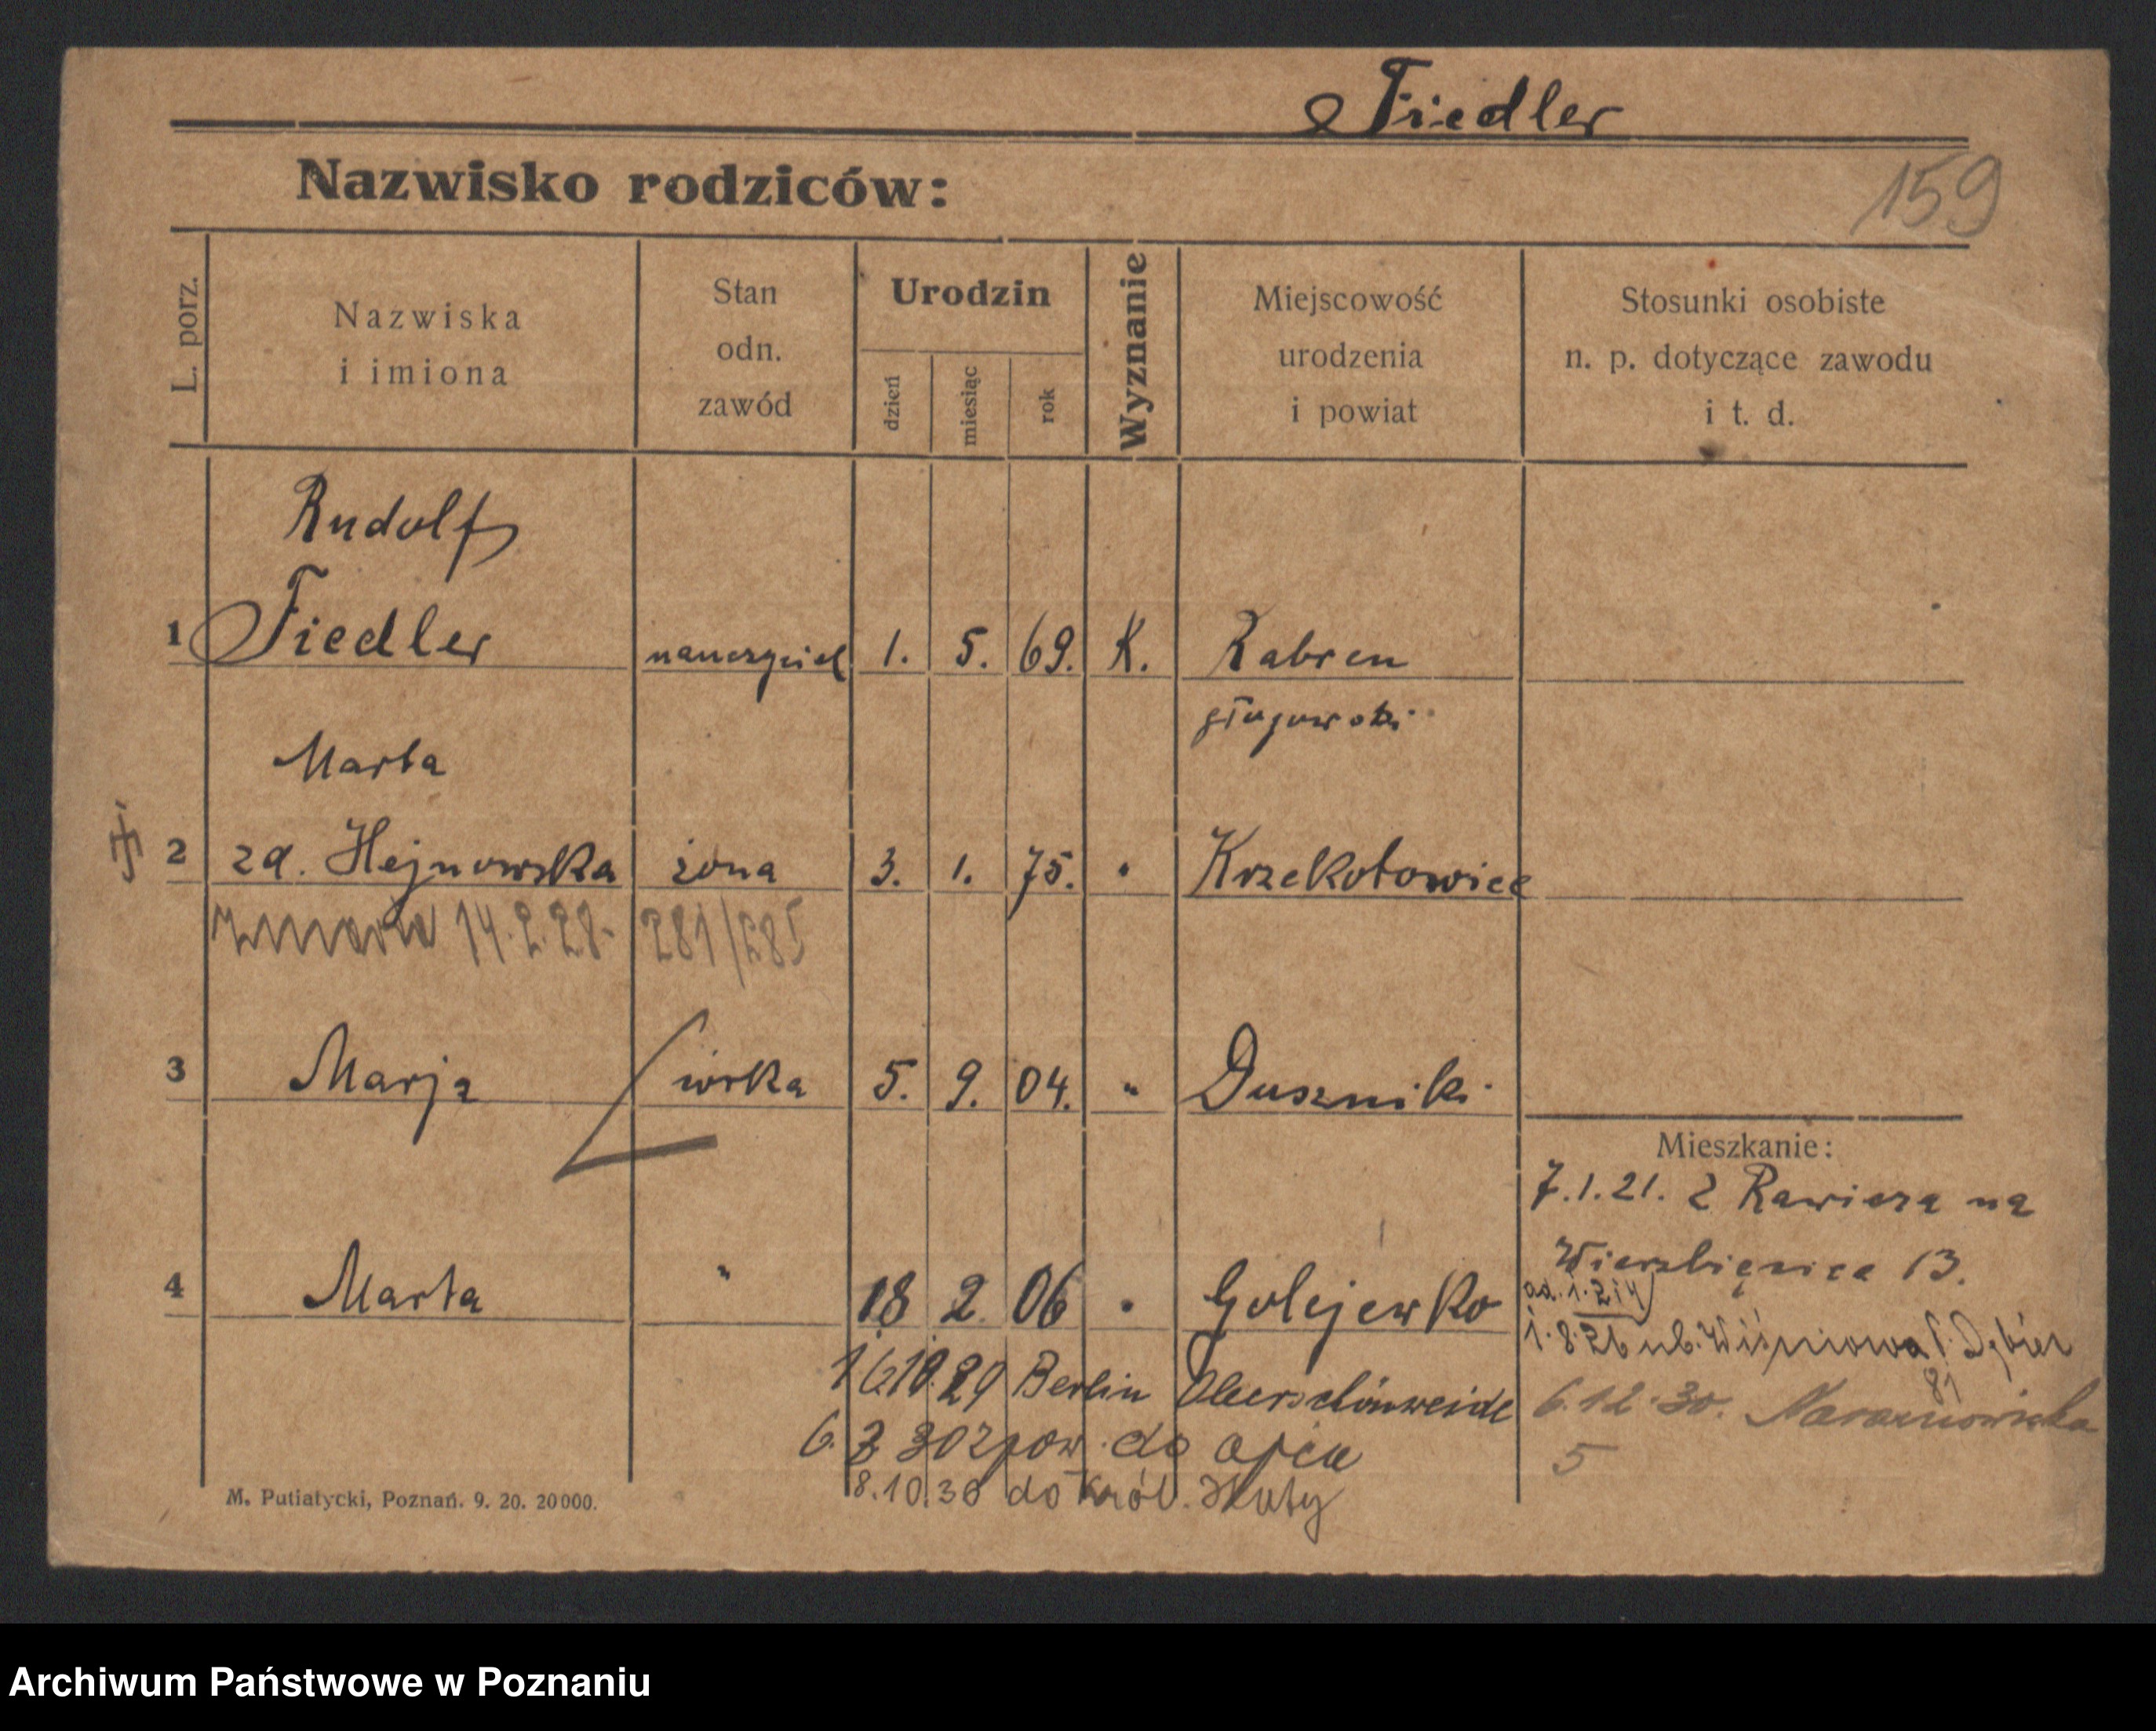 Fiedler
Nazwisko rodziców:
159
L. porz.
Nazwiska
i imiona
Stan
odn.
zawód
Urodzin
dzień
miesiąc
rok
Wyznanie
Miejscowość
urodzenia
i powiat
Stosunki osobiste
n. p. dotyczące zawodu
i t. d.
Rudolf
1 Fiedler nauczyciel 1. 5. 69. K. Rabren
głogowski
Marta
2 zd. Hejnowska żona 3. 1. 75. " Krzekotowice
zmarła 14.2.28. 281/285
3 Marja córka 5. 9. 04. " Duszniki
Mieszkanie:
7.1.21. z Rawicza na
Wierzbięcice 13.
4 Marta " 18 2. 06 " Golejewko
ad. 1. 2 i 4
1.8.26 ul. Wiśniowa
81
16.10.29 Berlin Oberschönweide
6.12.30. Naramowicka
5
6. 3 30 z pow. do ojca
8.10.30 do Król. Huty
M. Putiatycki, Poznań. 9. 20. 20000.
Archiwum Państwowe w Poznaniu